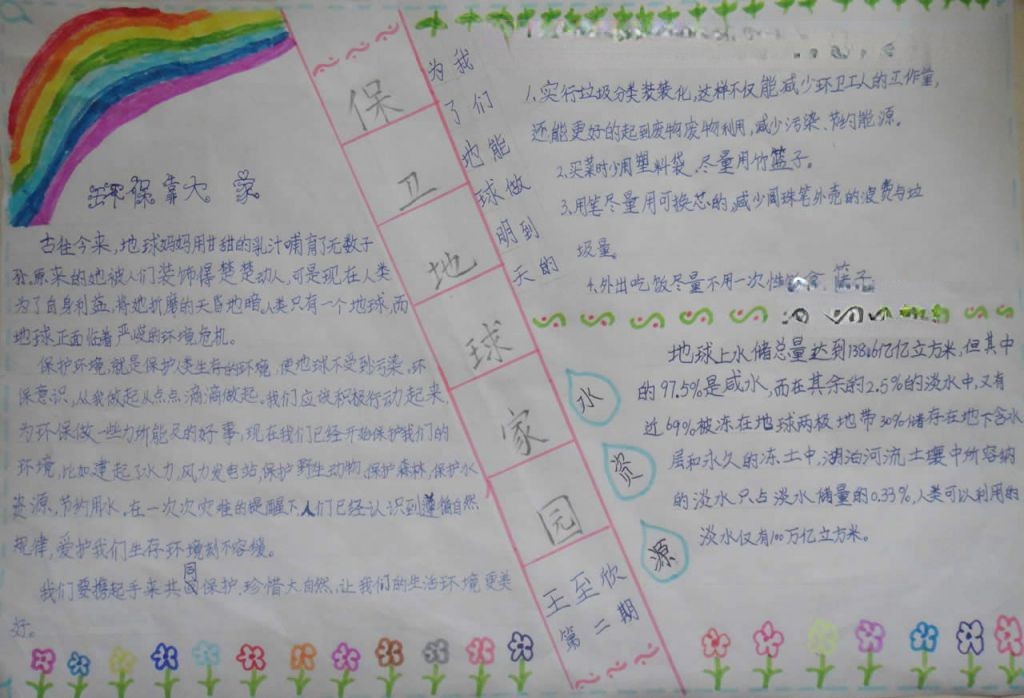 环保靠大家
古往今来，地球妈妈用甘甜的乳汁哺育了无数子
孙。原来的她被人们装饰得楚楚动人，可是现在人类
为了自身利益，将她折磨的天昏地暗。人类只有一个地球，而
地球正面临着严峻的环境危机。
保护环境，就是保护人类生存的环境，使地球不受到污染。环
保意识，从我做起从点点滴滴做起。我们应该积极行动起来，
为环保做一些力所能及的好事，现在我们已经开始保护我们的
环境，比如建起了水力，风力发电站，保护野生动物，保护森林，保护水
资源，节约用水。在一次次灾难的提醒下，人们已经认识到遵循自然
规律，爱护我们生存环境刻不容缓。
我们要携起手来共同保护，珍惜大自然，让我们的生活环境更美
好。
保
卫
地
球
家
园
王至欣
第二期
我们能做到的
为了地球明天
1、实行垃圾分类装袋化，这样不仅能减少环卫工人的工作量，
还能更好的起到废物废物利用，减少污染、节约能源。
2、买菜时少用塑料袋、尽量用竹篮子。
3、用笔尽量用可换芯的，减少圆珠笔外壳的浪费与垃
圾量。
4、外出吃饭尽量不用一次性
水
资
源
地球上水储总量达到138.6亿亿立方米，但其中
的97.5%是咸水，而在其余的2.5%的淡水中，又有
近69%被冻在地球两极地带30%储存在地下含水
层和永久的冻土中，湖泊河流土壤中所容纳
的淡水只占淡水储量的0.33%，人类可以利用的
淡水仅有100万亿立方米。